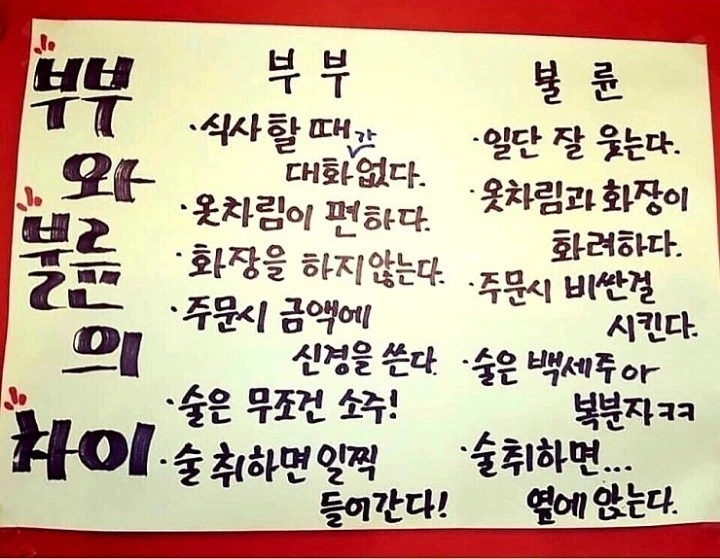 부부
와
불륜
의
차이
부부
·식사할때
간
대화없다.
·옷차림이 편하다.
·화장을 하지않는다.
·주문시 금액에
신경을 쓴다
·술은 무조건 소주!
·술 취하면 일찍
들어간다!
불륜
·일단 잘 웃는다.
·옷차림과 화장이
화려하다.
·주문시 비싼걸
시킨다.
·술은 백세주 아
복분자ㅋㅋ
·술취하면...
옆에 앉는다.